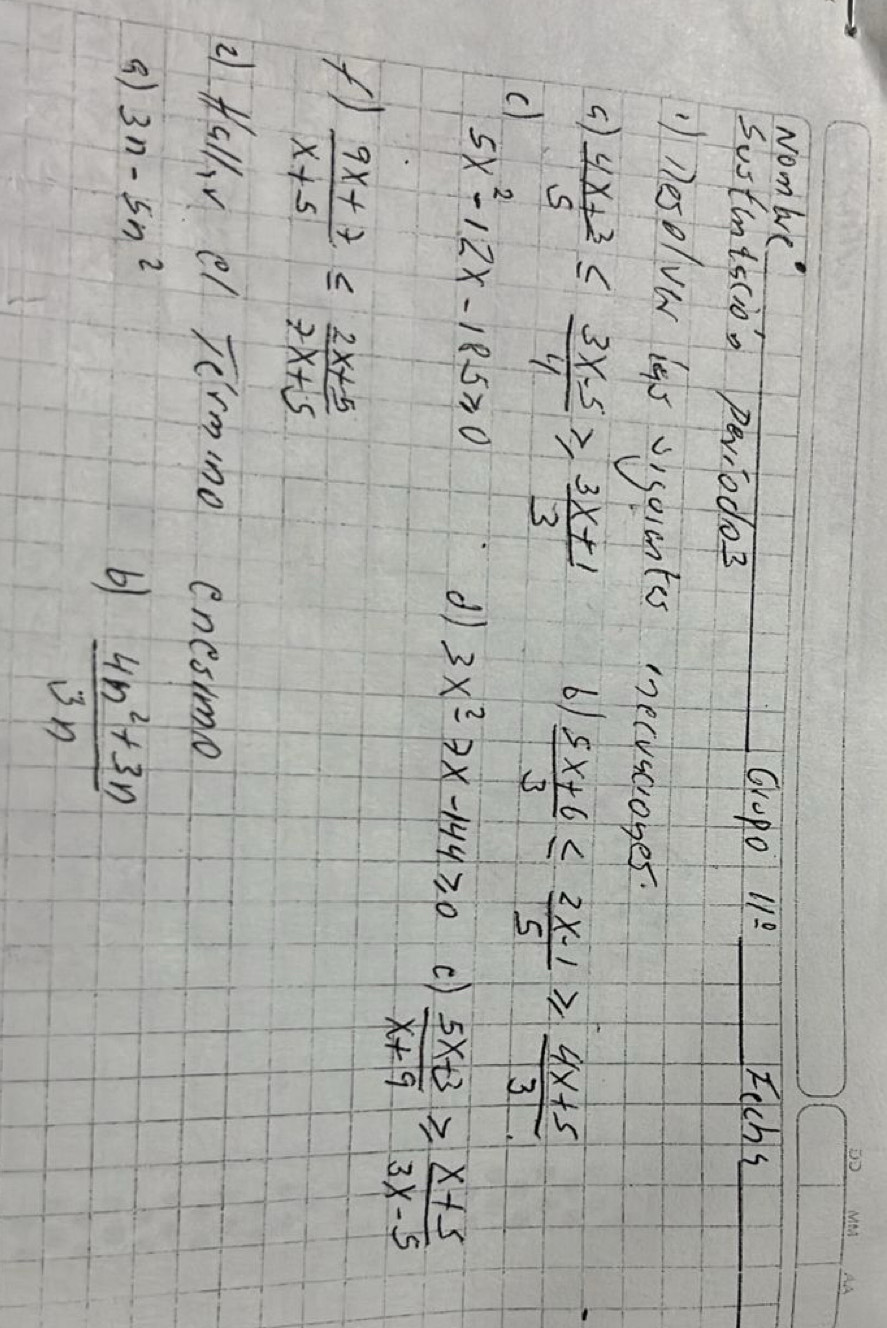 Nombre
Sustentación Período 3 Grupo 11º Fecha
1) Resolver las siguientes inecuaciones.
a) (4x+3)/5 ≤ (3x-5)/4 ≥ (3x+1)/3 b) (5x+6)/3 ≤ (2x-1)/5 ≥ (4x+5)/3
c) 5x²-12x-185≥0 d) 3x²-7x-144≥0 e) (5x+3)/(x+9) ≥ (x+5)/(3x-5)
f) (9x+7)/(x+5) ≤ (2x+5)/(7x+5)
2) Hallar el Término enésimo
a) 3n-5n² b) (4n²+3n)/3n
DD MM AA